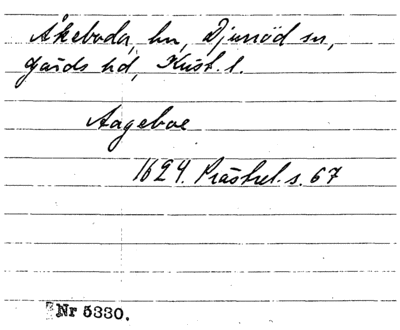 Åkeboda, hn, Djurröd sn,
Gärds hd, Krist. l.
Aageboe
1624. Prästrel. s. 67
Nr 5330.